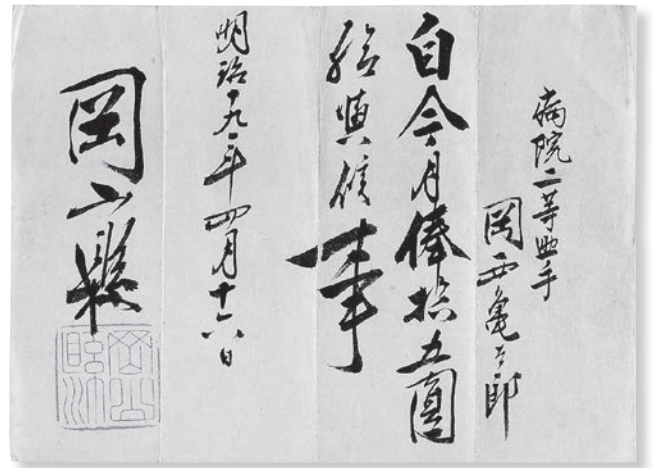 病院二等助手
岡西亀太郎
自今月俸拾五圓
給與候事
明治十九年四月十六日
岡山縣